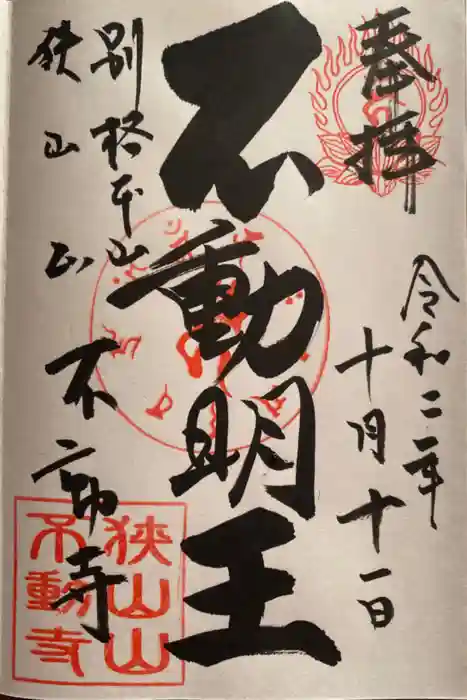 奉拝
令和二年
十月十一日
不動明王
別格本山
狭山山
不動寺
狭山山
不動寺